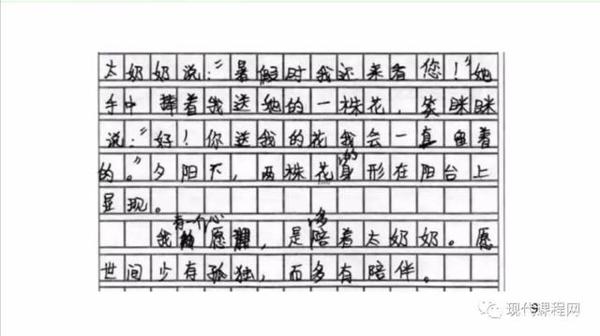 太奶奶说:“暑假时我还来看您!”她
手中捧着我送她的一株花,笑眯眯
说:“好!你送我的花我会一直留着
的。”夕阳下,两株花的身形在阳台上
显现。
我有一个心愿,是多陪着太奶奶。愿
世间少有孤独,而多有陪伴。
现代课程网
9